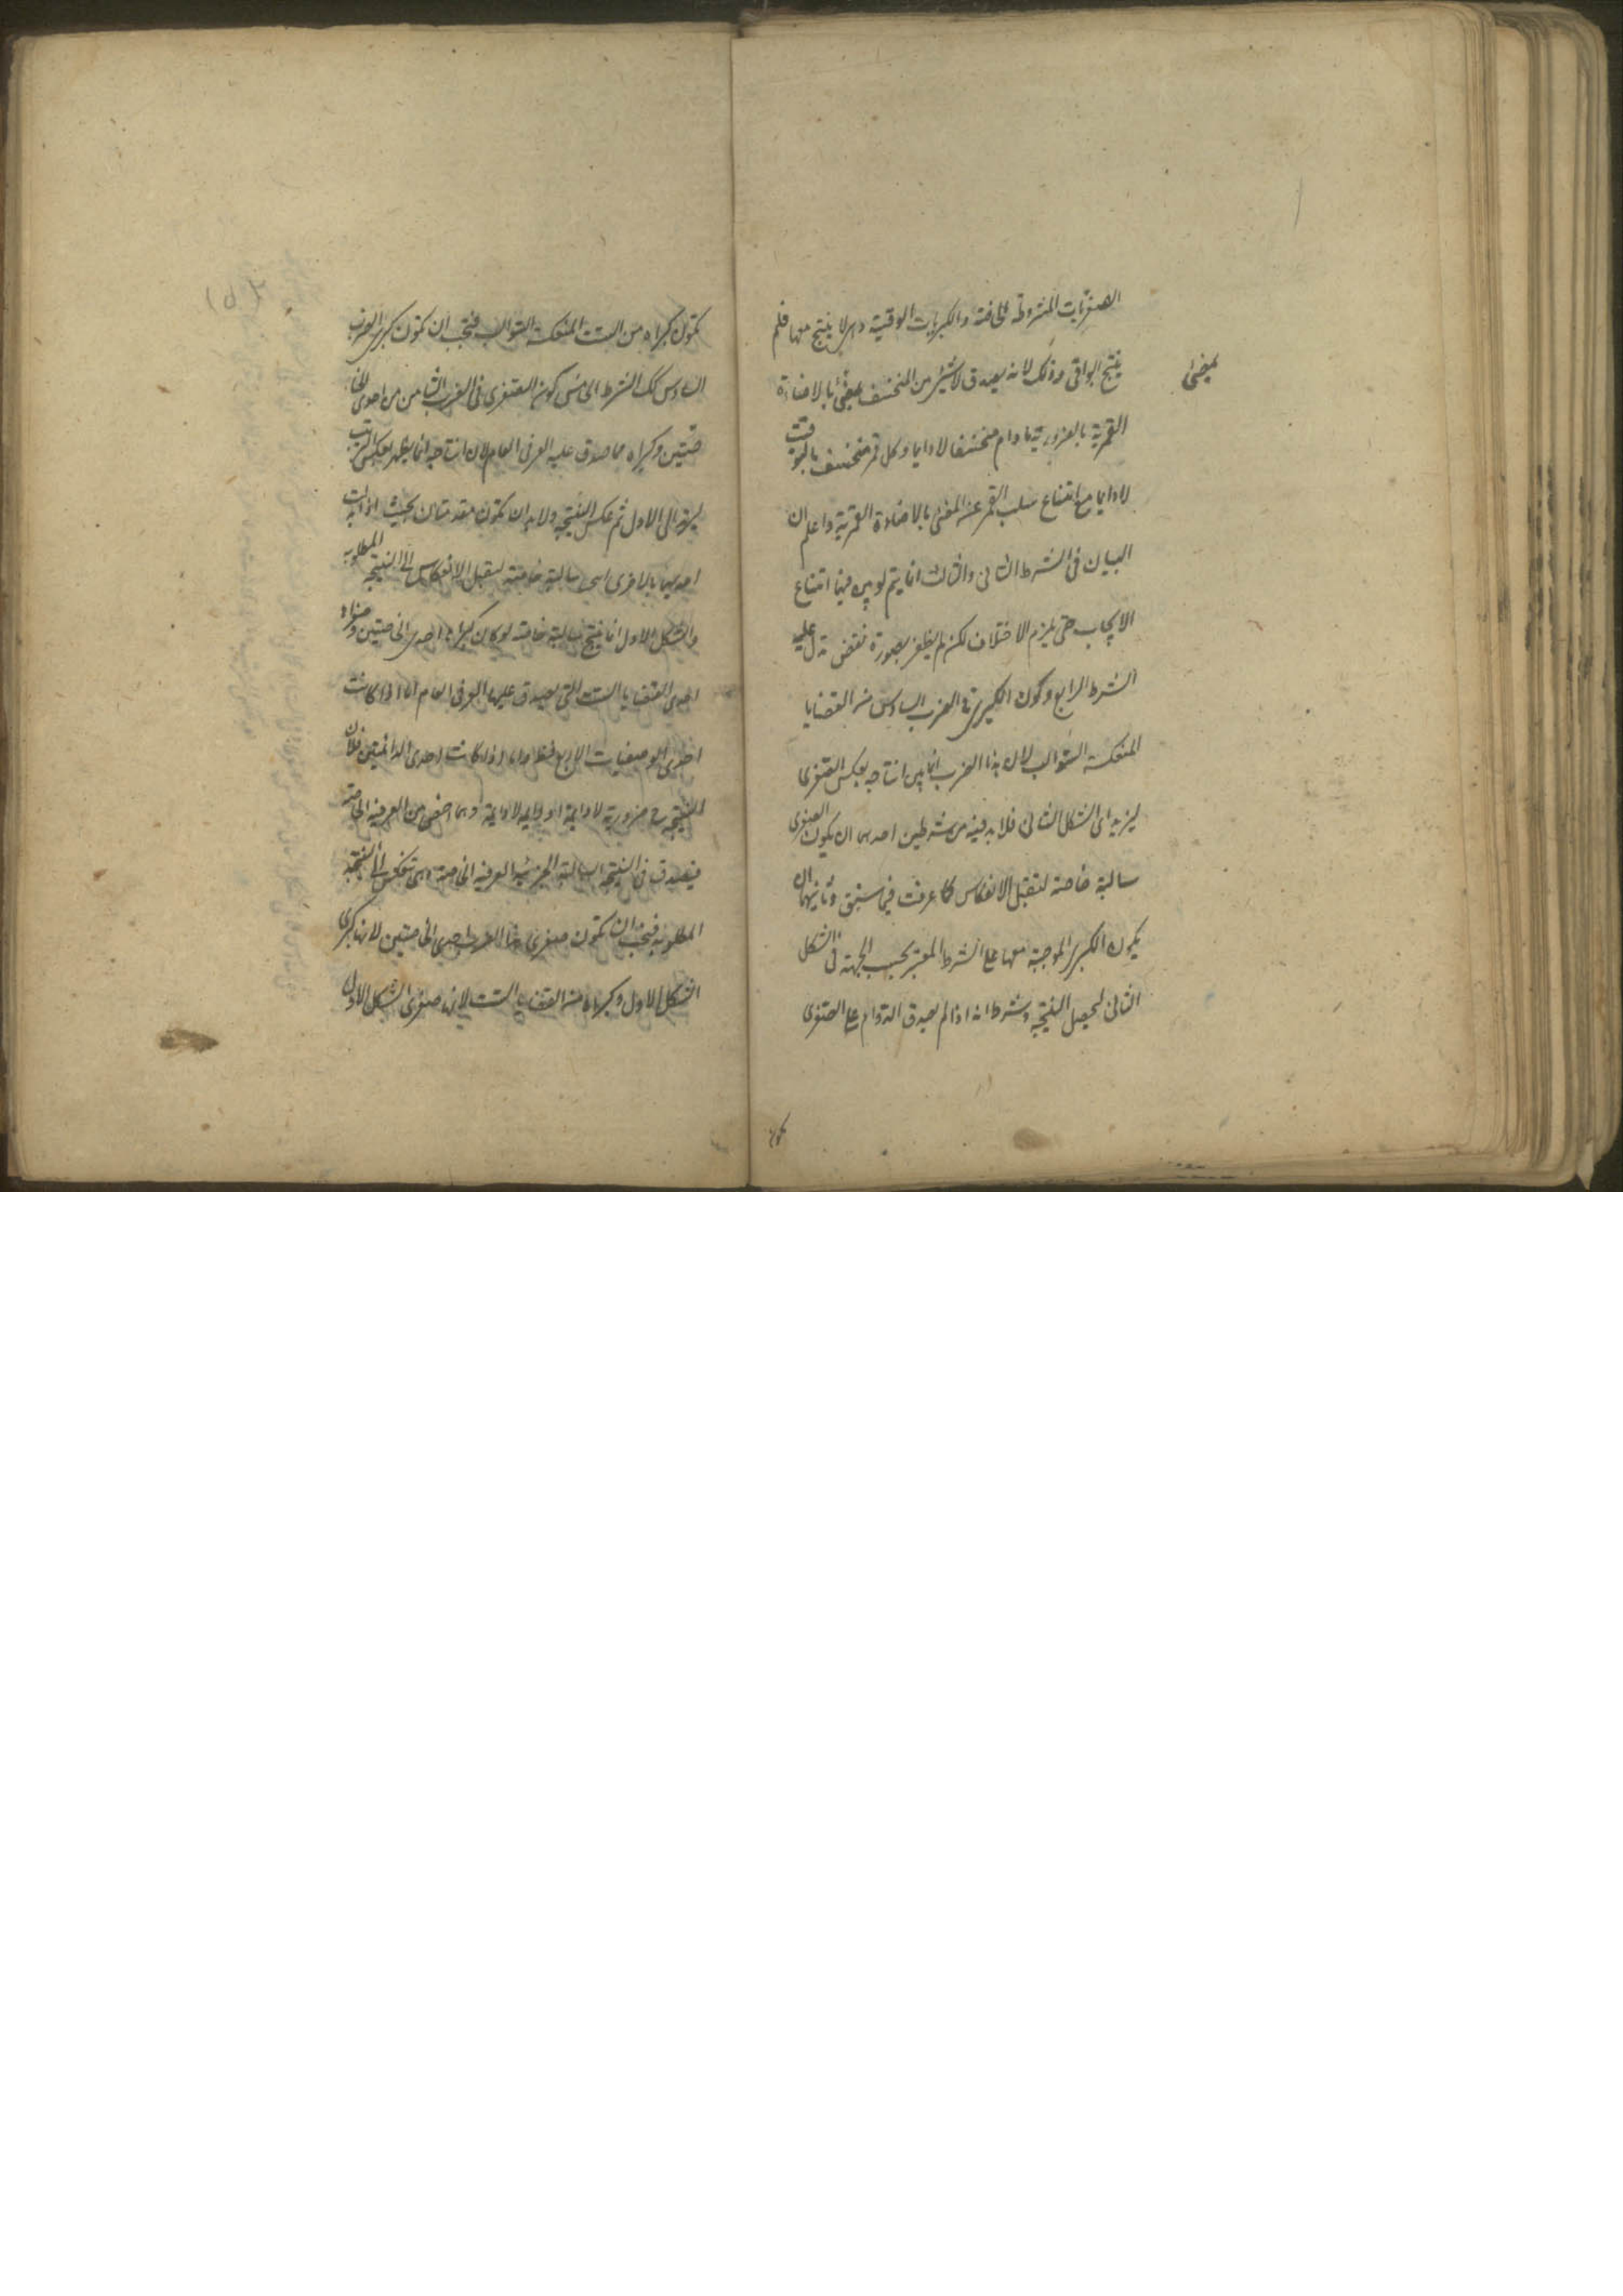 الصغريات المشروطة الخاصة والكبريات الوقتية وهى لا ينتج معها فلم
ينتج البواقى وذلك لانه يصدق لا شئ من المنخسف بمضئ بالاضاءة
بمضئ
القمرية بالضرورة مادام منخسفا لا دائما وكل قمر منخسف بالتوقيت
لا دائما مع امتناع سلب القمر عن المضئ بالاضاءة القمرية واعلم ان
البيان فى الشرط الثانى والثالث انما يتم لو بين فيها امتناع
الايجاب حتى يلزم الاختلاف لكن لم يظفر بصورة نقض تدل عليه
الشرط الرابع وكون الكبرى فى الضرب السادس من القضايا
المنعكسة السوالب لان هذا الضرب انما يبين انتاجه بعكس الصغرى
ليرتد الى الشكل الثانى فلا بد فيه من شرطين احدهما ان يكون الصغرى
سالبة خاصة لتقبل الانعكاس كما عرفت فيما سبق وثانيهما ان
يكون الكبرى الموجبة معها على الشرط المعتبر بحسب الجهة فى الشكل
الثانى ليحصل النتيجة وشرطه انه اذا لم يصدق الدوام على الصغرى
تكون
تكون كبراه من الست المنعكسة السوالب فيجب ان تكون كبرى الضرب
السادس كك الشرط الخامس كون الصغرى فى الضرب الثامن من احدى الخا
صتين وكبراه مما صدق عليه العرفى العام لان انتاجه انما يظهر بعكس الترتيب
ليرتد الى الاول ثم عكس النتيجة ولا بد ان تكون مقدمتان بحيث اذا بدلت
احديهما بالاخرى سالبة خاصة لتقبل الانعكاس الى النتيجة المطلوبة
والشكل الاول انما ينتج سالبة خاصة لو كان كبراه احدى الخاصتين وصغراه
احدى القضايا الست التى يصدق عليها العرفى العام اما اذا كانت
احدى الوصفيات الاربع فظ واما اذا كانت احدى الدائمتين فلان
النتيجة ح ضرورية لا دائمة او دائمة لا دائمة وهما اخص من العرفية الخاصة
فيصدق فى النتيجة السالبة الجزئية العرفية الخاصة وهى تنعكس الى النتيجة
المطلوبة فيجب ان تكون صغرى هذا الضرب احدى الخاصتين لانها كبرى
الشكل الاول وكبراها من القضايا الست لانها صغرى الشكل الاول